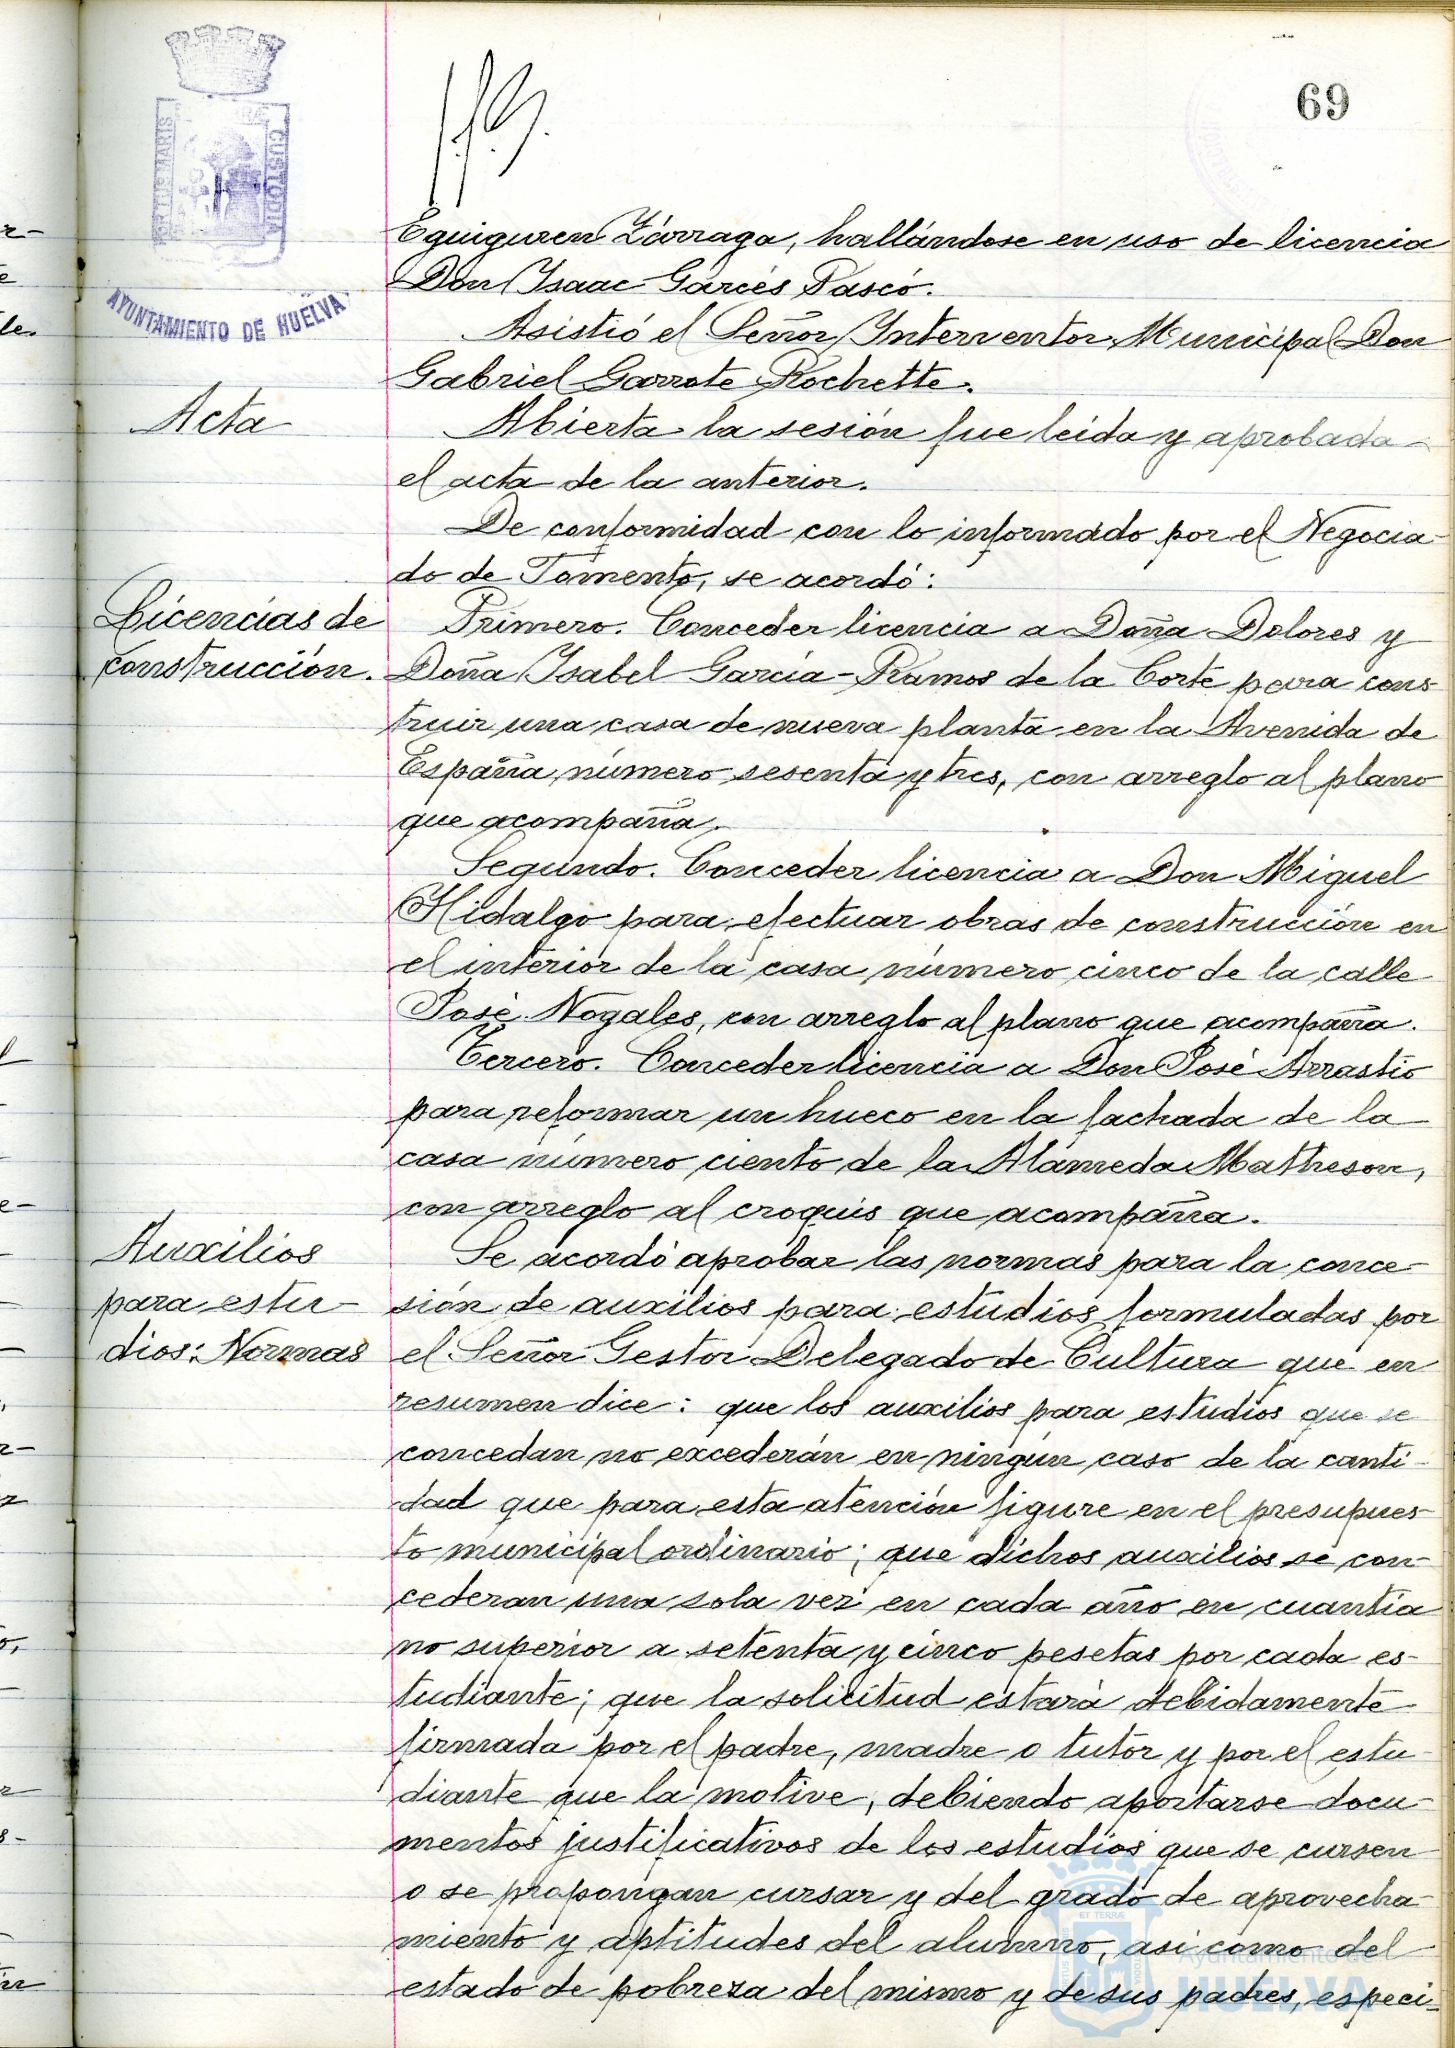 69
PORTUS MARIS
CUSTODIA
AYUNTAMIENTO DE HUELVA
Eguiguren Zárraga, hallándose en uso de licencia
Don Isaac Garcés Pascó.
Asistió el Señor Interventor Municipal Don
Gabriel Garrote Rochette.
Acta
Abierta la sesión fue leida y aprobada
el acta de la anterior.
De conformidad con lo informado por el Negocia-
do de Fomento, se acordó:
Licencias de
construcción.
Primero. Conceder licencia a Doña Dolores y
Doña Isabel García-Ramos de la Corte para cons-
truir una casa de nueva planta en la Avenida de
España, número sesenta y tres, con arreglo al plano
que acompaña.
Segundo. Conceder licencia a Don Miguel
Hidalgo para efectuar obras de construcción en
el interior de la casa número cinco de la calle
José Nogales, con arreglo al plano que acompaña.
Tercero. Conceder licencia a Don José Arrastio
para reformar un hueco en la fachada de la
casa número ciento de la Alameda Matheson,
con arreglo al croquis que acompaña.
Auxilios
para estu-
dios: Normas
Se acordó aprobar las normas para la conce-
sión de auxilios para estudios formuladas por
el Señor Gestor Delegado de Cultura que en
resumen dice: que los auxilios para estudios que se
concedan no excederán en ningún caso de la canti-
dad que para esta atención figure en el presupues-
to municipal ordinario; que dichos auxilios se con-
cederan una sola vez en cada año en cuantia
no superior a setenta y cinco pesetas por cada es-
tudiante; que la solicitud estará debidamente
firmada por el padre, madre o tutor y por el estu-
diante que la motive, debiendo aportarse docu-
mentos justificativos de los estudios que se cursen
o se propongan cursar y del grado de aprovecha-
miento y aptitudes del alumno, asi como del
estado de pobreza del mismo y de sus padres, especi-
Ayuntamiento de
HUELVA